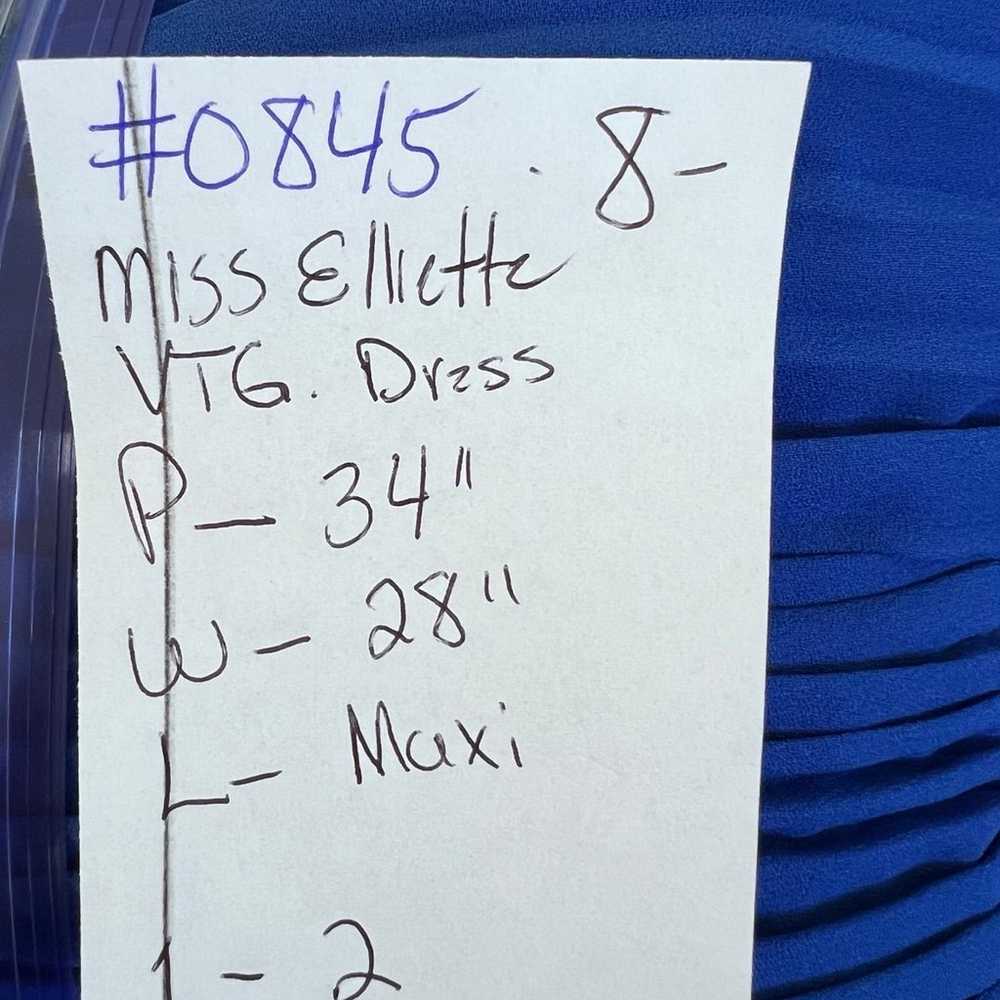 #0845 . 8-
Miss Elliette
VTG. Dress
P - 34"
W - 28"
L - Maxi
- 2